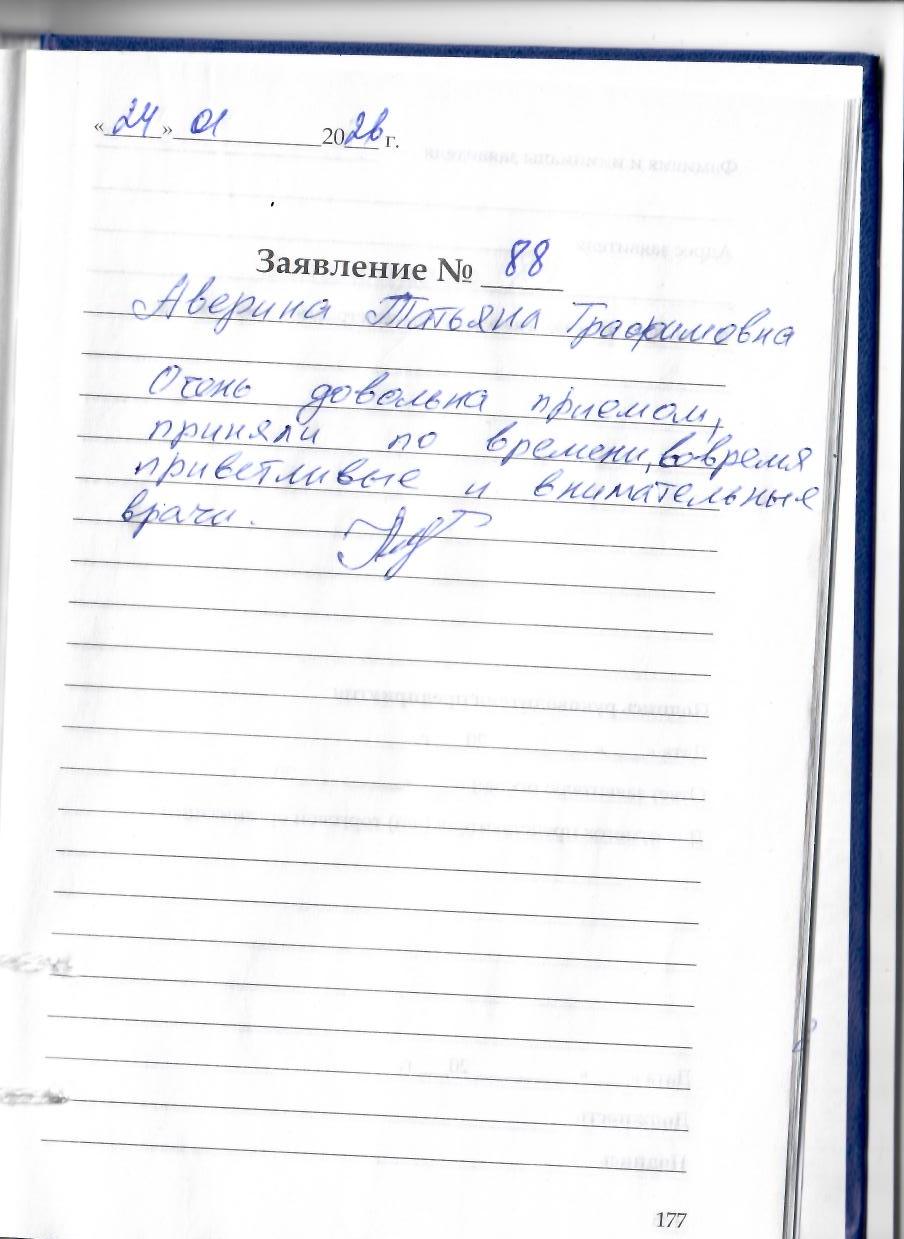 «24» 01 2026 г.
Заявление № 88
Аверина Татьяна Трафимовна
Очень довольна приемом,
приняли по времени, вовремя
приветливые и внимательные
врачи.
177